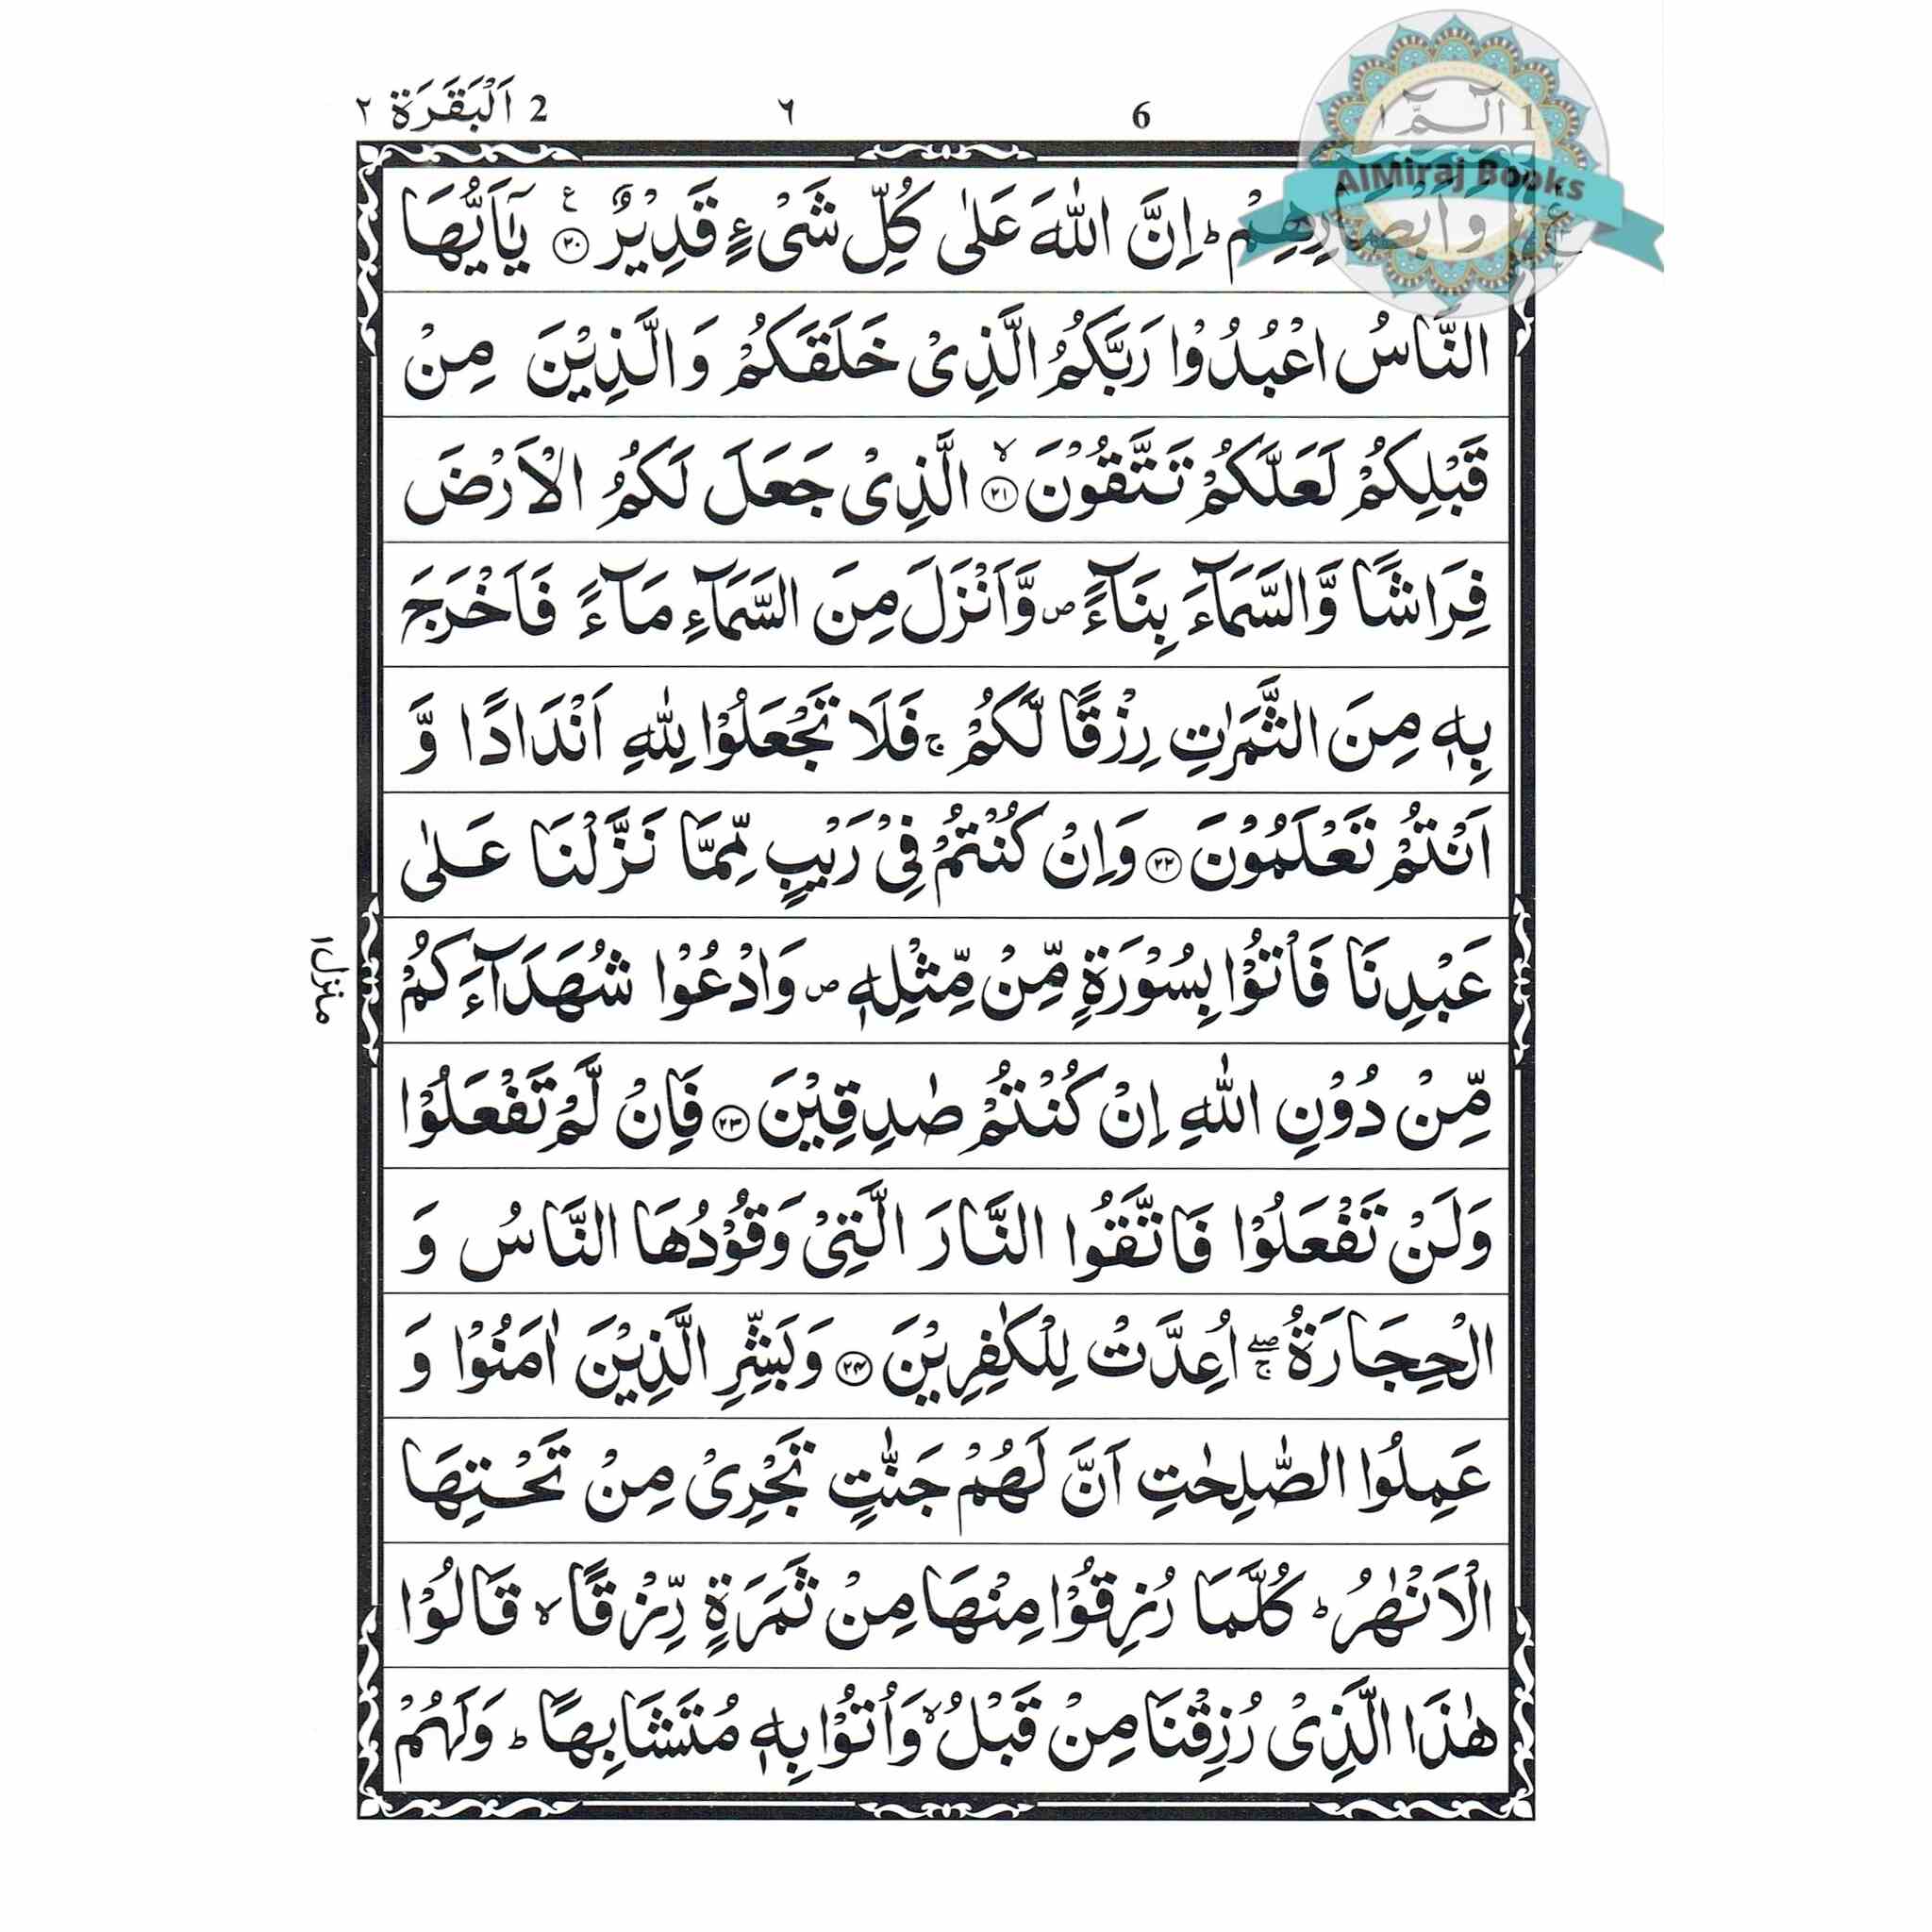 1 الٓـمّٓ ١ 6 ٦ 2 اَلْبَقَرَة ٢
AlMiraj Books
وَاَبْصَارِهِمْ ؕ اِنَّ اللّٰهَ عَلٰى كُلِّ شَیْءٍ قَدِیْرٌ ۟۠ ﴿۲۰﴾ یٰۤاَیُّهَا
النَّاسُ اعْبُدُوْا رَبَّكُمُ الَّذِیْ خَلَقَكُمْ وَالَّذِیْنَ مِنْ
قَبْلِكُمْ لَعَلَّكُمْ تَتَّقُوْنَ ۙ﴿۲۱﴾ الَّذِیْ جَعَلَ لَكُمُ الْاَرْضَ
فِرَاشًا وَّالسَّمَآءَ بِنَآءً ۪ وَّاَنْزَلَ مِنَ السَّمَآءِ مَآءً فَاَخْرَجَ
بِهٖ مِنَ الثَّمَرٰتِ رِزْقًا لَّكُمْ ۚ فَلَا تَجْعَلُوْا لِلّٰهِ اَنْدَادًا وَّ
اَنْتُمْ تَعْلَمُوْنَ ﴿۲۲﴾ وَاِنْ كُنْتُمْ فِیْ رَیْبٍ مِّمَّا نَزَّلْنَا عَلٰى
عَبْدِنَا فَاْتُوْا بِسُوْرَةٍ مِّنْ مِّثْلِهٖ ۪ وَادْعُوْا شُهَدَآءَكُمْ
مِّنْ دُوْنِ اللّٰهِ اِنْ كُنْتُمْ صٰدِقِیْنَ ﴿۲۳﴾ فَاِنْ لَّمْ تَفْعَلُوْا
وَلَنْ تَفْعَلُوْا فَاتَّقُوا النَّارَ الَّتِیْ وَقُوْدُهَا النَّاسُ وَ
الْحِجَارَةُ ۖۚ اُعِدَّتْ لِلْكٰفِرِیْنَ ﴿۲۴﴾ وَبَشِّرِ الَّذِیْنَ اٰمَنُوْا وَ
عَمِلُوا الصّٰلِحٰتِ اَنَّ لَهُمْ جَنّٰتٍ تَجْرِیْ مِنْ تَحْتِهَا
الْاَنْهٰرُ ؕ كُلَّمَا رُزِقُوْا مِنْهَا مِنْ ثَمَرَةٍ رِّزْقًا ۙ قَالُوْا
هٰذَا الَّذِیْ رُزِقْنَا مِنْ قَبْلُ ۙ وَاُتُوْا بِهٖ مُتَشَابِهًا ؕ وَلَهُمْ
منزل ١